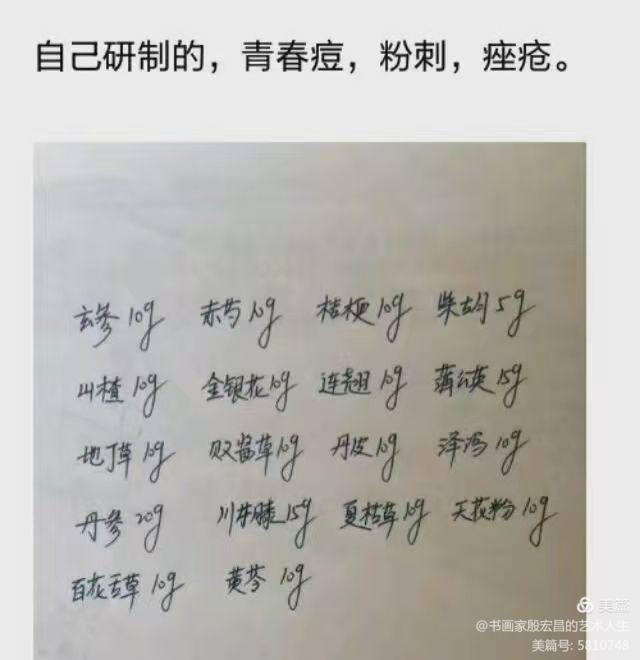 自己研制的，青春痘，粉刺，痤疮。
玄参10g 赤芍10g 桔梗10g 柴胡5g
山楂10g 金银花10g 连翘10g 蒲公英15g
地丁草10g 败酱草10g 丹皮10g 泽泻10g
丹参20g 川牛膝15g 夏枯草10g 天花粉10g
百花舌草10g 黄芩10g
美篇
@书画家殷宏昌的艺术人生
美篇号: 5810748